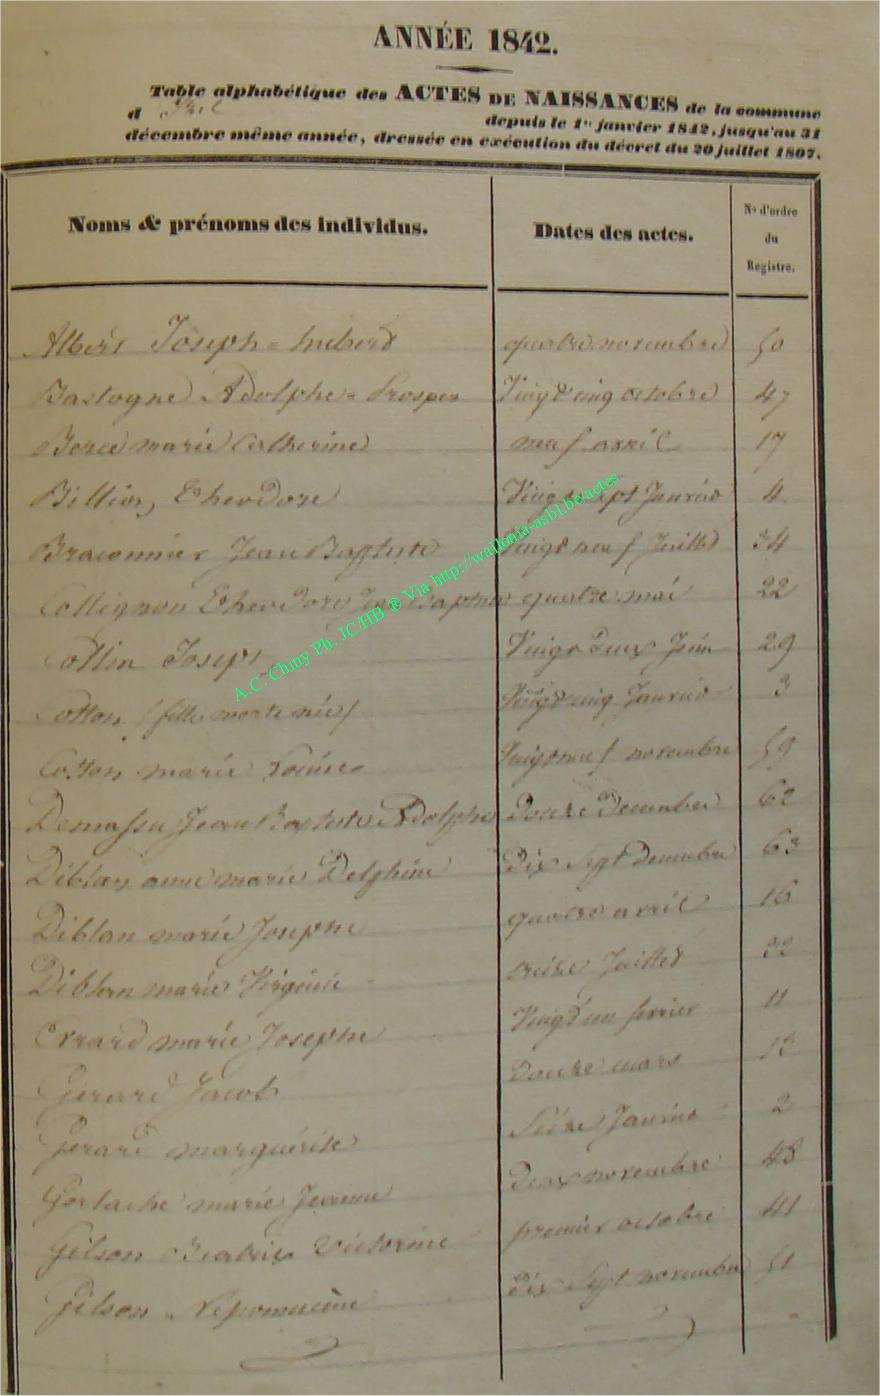 ANNÉE 1842.
Table alphabétique des ACTES DE NAISSANCES de la commune
d depuis le 1er janvier 1842, jusqu'au 31
décembre même année, dressée en exécution du décret du 20 juillet 1807.
Noms & prénoms des individus. Dates des actes. No d'ordre du Registre.
Albert Joseph-hubert quatre novembre 50
Bastogne Adolphe-Prosper Vingt cinq octobre 47
marie Catherine neuf avril 17
Théodore Vingt sept Janvier 4
Braconnier Jean Baptiste Vingt neuf Juillet 34
Collignon Théodore quatre mai 22
Collin Joseph Vingt deux Juin 29
Cotton (fille morte née) Vingt cinq Janvier 3
Cotton marie Louise Vingt neuf novembre 59
Jean Baptiste Adolphe Douze Decembre 62
Diblan anne marie Delphine Dix Sept Decembre 63
Diblan marie Josephe quatre avril 16
Diblan marie Virginie treize Juillet
Errard marie Josephe Vingt un fevrier 11
Gerard Jacob Douze mars 13
Gerard marguérite Janvier 2
Gerlache marie Jeanne Deux novembre 48
Gilson Beatrix Victorine premier octobre 41
Gilson Népomucène Dix Sept novembre 51
A.C. Chiny Ph. JC/HB ® Via http://wallonia-asbl.be/actes